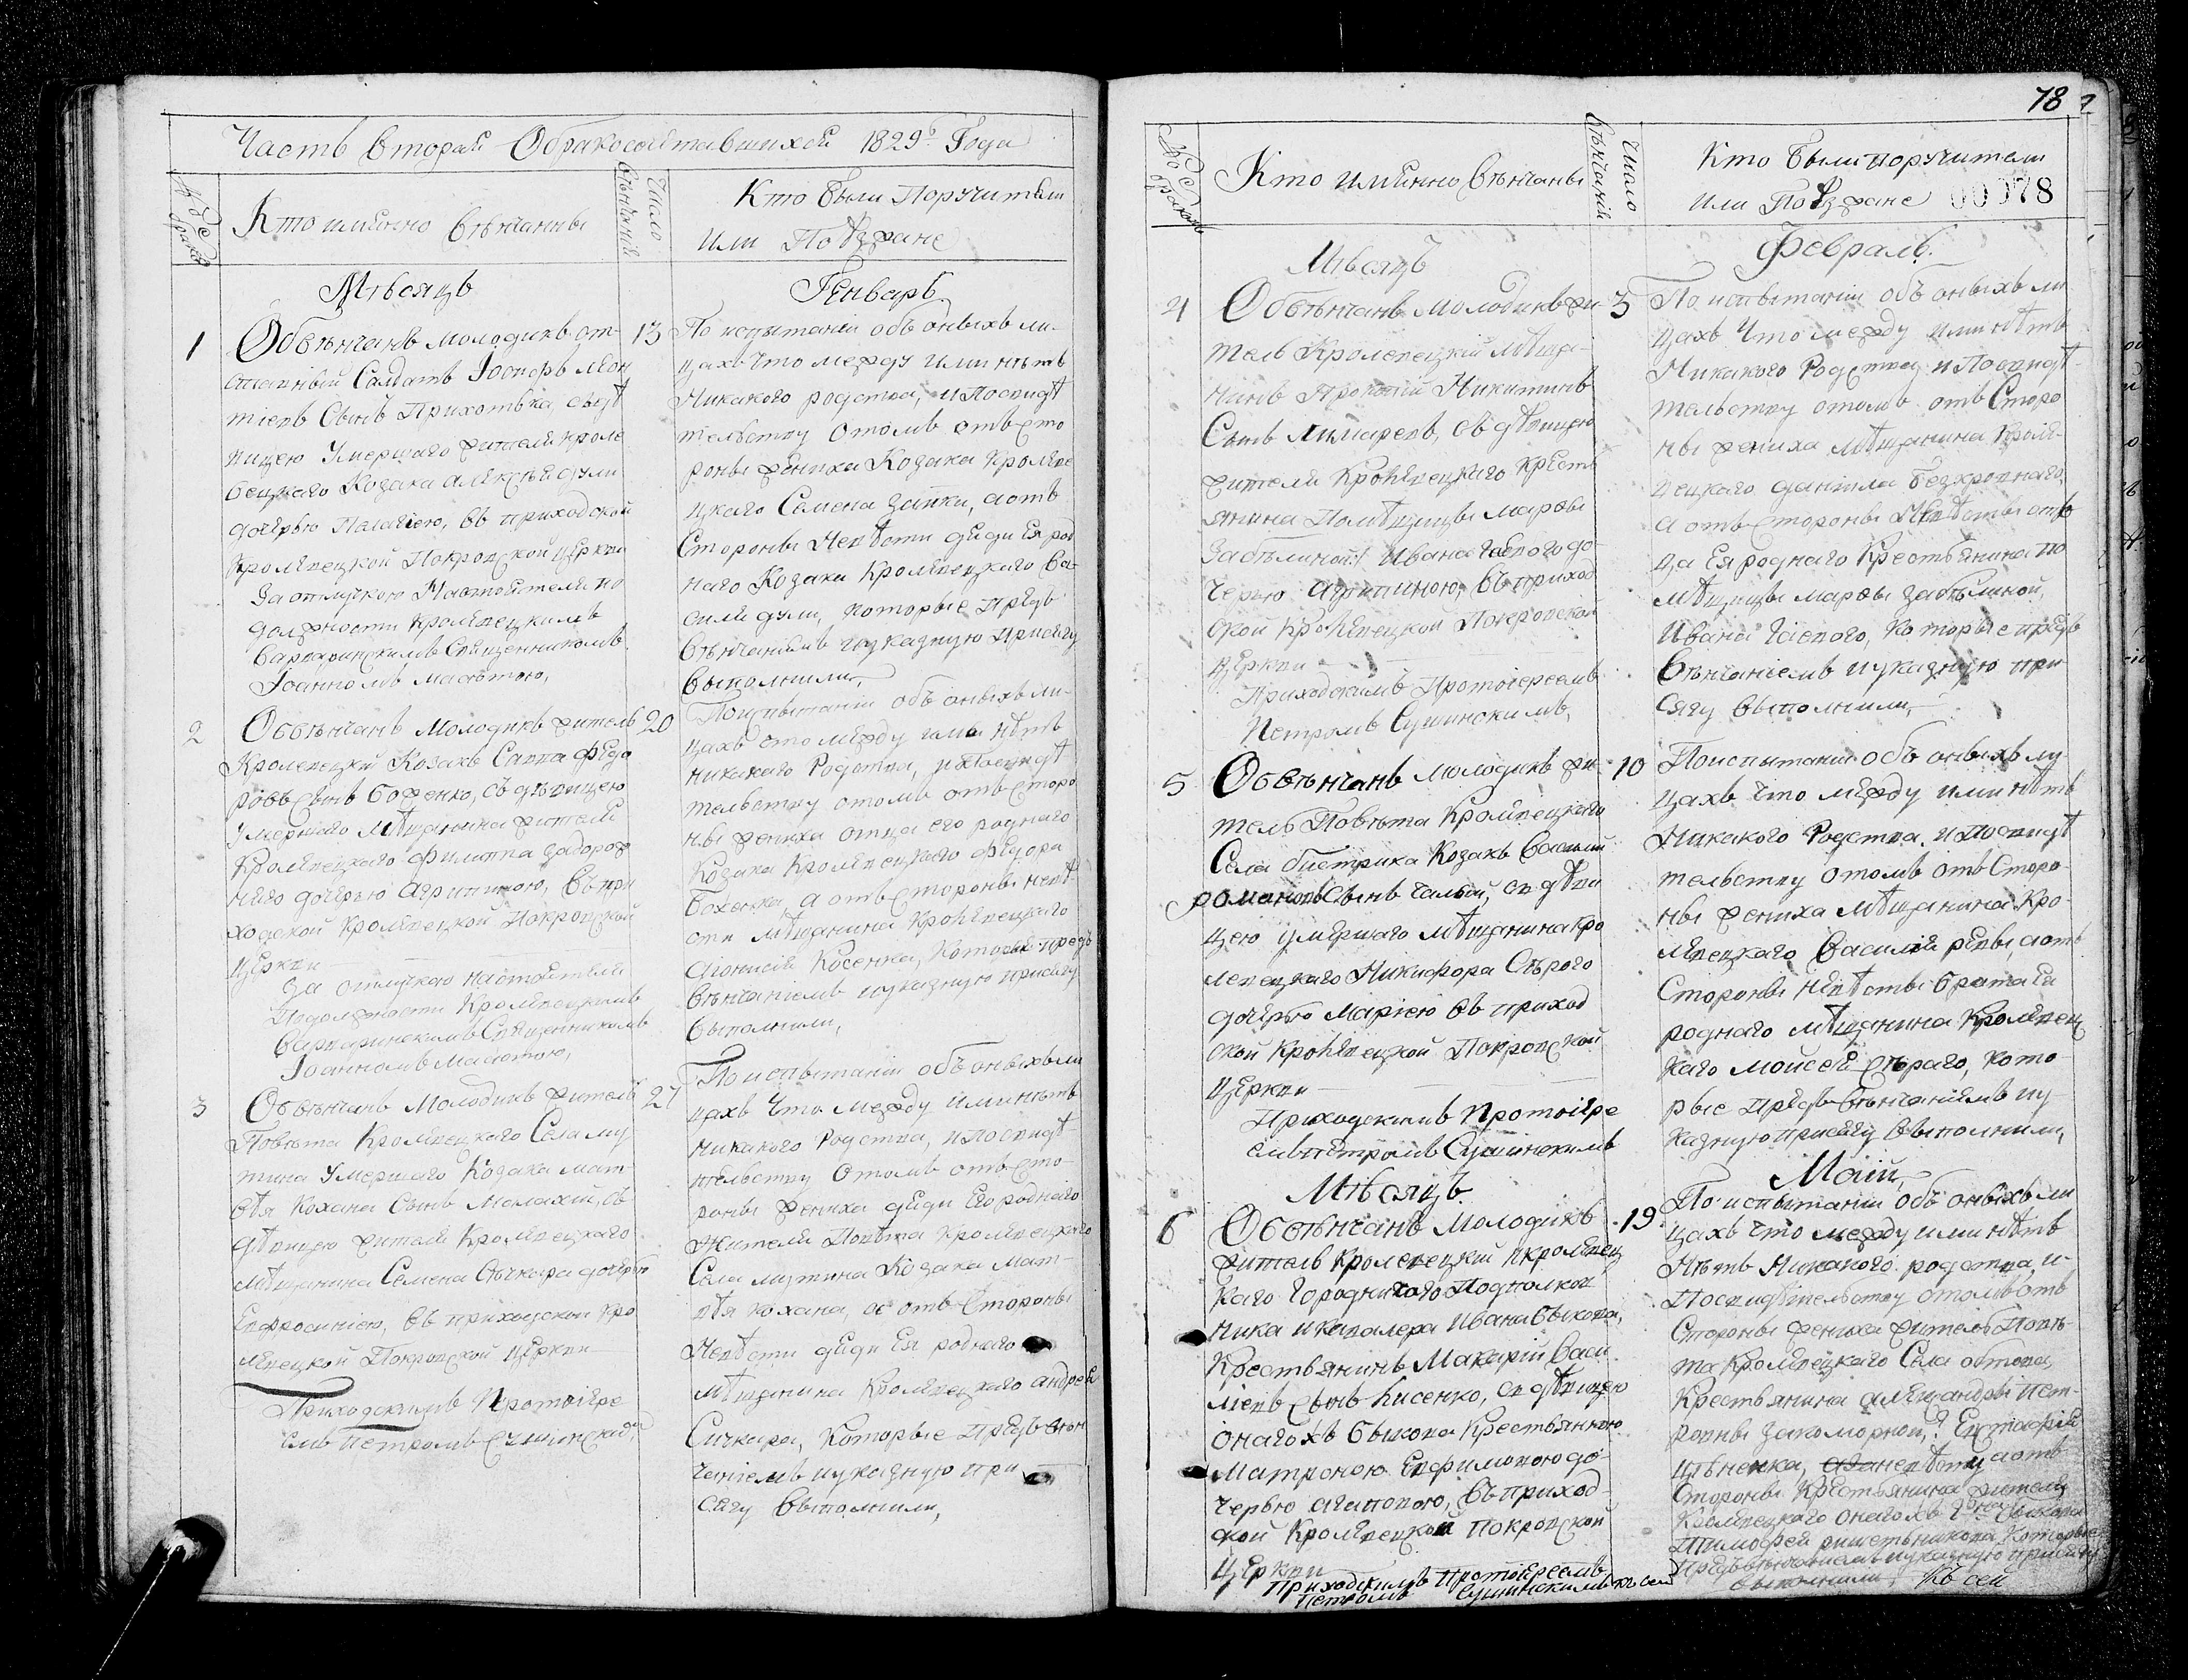 Часть вторая О бракосочетавшихся 1829º Года
№ браков
Кто имянно венчаны
Число венчаний
Кто были Поручители
или Поѣзжане
Мѣсяцъ
Генварь
1
Обвѣнчанъ молодикъ от-
ставный Салдатъ Іосифъ Леон
тіевъ Сынъ Прихотька, съ дѣ
вицею Умершаго жителя кроле
вецкаго Козака Алексѣя Дули
дочерью Палагіею, въ приходской
Кролевецкой Покровской церкви
За отлучкою Настоятеля по
должности Кролевецкимъ
Варваринскимъ Священникомъ
Іоанномъ Маковтою,
13
По испытаніи объ оныхъ ли-
цахъ что между ими нѣтъ
Никакого родства, и Посвидѣ
тельству о томъ отъ сто
роны жениха Козака кролеве
цкаго Семена Запки, а отъ
Стороны Невѣсты дяди Ея род
наго Козака Кролевецкаго Ва-
силя дули, которые предъ
вѣнчаніемъ и указную присягу
выполнили,
2
Обвѣнчанъ Молодикъ житель
Кролевецкій Козакъ Савва Федо
ровъ Сынъ Боженко, съ дѣвицею
умершаго Мѣщанина жителя
Кролевецкаго Филиппа Задорож
наго дочерью Агрипиною, въ при
ходской Кролевецкой Покровской
церкви
За отлучкою настоятеля
По должности Кролевецкимъ
Варваринскимъ Священникомъ
Іоанномъ Маковтою,
20
По испытаніи объ оныхъ ли-
цахъ что между ими нѣтъ
никакого Родства, и Посвидѣ
тельству о томъ отъ сторо
ны жениха отца его роднаго
Козака Кролевецкаго Федора
Боженка, а отъ стороны невѣ
сты мѣщанина Кролевецкаго
Діонисія Косенка, которые предъ
вѣнчаніемъ и указную присягу
выполнили,
3
Обвѣнчанъ Молодикъ житель
Повѣта Кролевецкаго Села Му
тина Умершаго Козака Мат-
вѣя Кохана Сынъ Малахій, съ
дѣвицею жителя Кролевецкаго
мѣщанина Семена Сѣчкара дочерью
Евфросиніею, въ приходской Кро
левецкой Покровской церкви
Приходскимъ Протоіере
емъ Петромъ Сушинский
27
По испытаніи объ оныхъ ли
цахъ Что Между ими нѣтъ
никакого Родства, и Посвидѣ
тельству о томъ отъ сто-
роны жениха дяди Его роднаго
Жителя Повѣта Кролевецкаго
Села мутина Козака Мат-
вѣя Кохана, а отъ Стороны
Невѣсты дяди Ея роднаго
мѣщанина Кролевецкаго Андрея
Сичкара, Которые Предъ вѣн
чаніемъ и указную при
сягу выполнили,
78
№ браковъ
Кто имянно вѣнчаны
Число вѣнчаній
Кто были поручители
или Поѣзжане 00078
Мѣсяцъ
Февраль.
4
Обвѣнчанъ Молодикъ жи-
тель Кролевецкій мѣща-
нинъ Прокопій Никитинъ
Сынъ Лимаревъ, съ дѣвицею
жителя Кролевецкаго Крестья
янина Помѣщицы Марфы
Забѣлиной Ивана Гаевого до-
черью Агрипиною, въ приход
ской Кролевецкой Покровской
церкви
Приходскимъ Протоіереемъ
Петромъ Сушинскимъ,
3
По испытаніи объ оныхъ ли
цахъ Что между ими нѣтъ
Никакого Родства и Посвидѣ-
тельству о томъ отъ Сторо
ны жениха мѣщанина Кроле-
вецкаго Данила Безкровнаго,
а отъ Стороны Невѣсты от
ца Ея роднаго Крестьянина по
мѣщицы Марфы Забѣлиной,
Ивана Гаевого, которые предъ
вѣнчаніемъ и указную при
сягу выполнили,
5
Обвѣнчанъ молодикъ жи-
тель Повѣта Кролевецкаго
Села Бистрика Козакъ Василій
Романовъ Сынъ Чалый, съ дѣви
цею умершаго мѣщанина Кро
левецкаго Никифора Сѣрого
дочерью Маріею въ приход
ской Кролевецкой Покровской
церкви
Приходскимъ Протоіере
емъ Петромъ Сушинскимъ
10
По испытаніи объ оныхъ ли
цахъ что между ими нѣтъ
Никакого Родства, и Посвидѣ
тельству о томъ отъ Сторо-
ны жениха Мѣщанина Кро-
левецкаго Василія Рѣпы, а отъ
Стороны невѣсты брата Ея
роднаго мѣщанина Кролевец
каго Мойсея Сѣраго, кото-
рые предъ вѣнчаніемъ и у-
казную присягу выполнили,
Мѣсяцъ
Маій,
6
Обвѣнчанъ Молодикъ
житель кролевецкій Кролевец
каго Городничаго Подполков
ника и кавалера Ивана Быкова,
Крестьянинъ Макарій Васи
ліевъ Сынъ Кисенко, съ дѣвицею
онаго жъ Быкова Крестьянкою
Матроною Евфимовою до-
черью Агаповою, въ приход-
ской Кролевецкой Покровской
Церкви
Приходскимъ Протоіереемъ
Петромъ Сушинскимъ
19
По испытаніи объ оныхъ ли
цахъ что между ими нѣтъ
Нѣтъ Никакого родства, и
Посвидѣтельству о томъ отъ
Стороны жениха житель Повѣ-
та Кролевецкаго Села
Крестьянина Александры Пет-
ровны Закоморной, Евстафія
а отъ
Стороны Крестьянина жителя
Кролевецкаго онаго жъ Быкова
Тимофея Решетникова, Которые
Предъ вѣнчаніемъ и указную присягу
выполнили, Къ сей